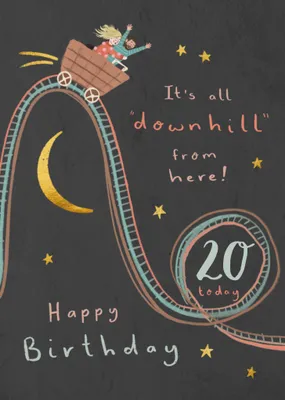 It's all
"downhill"
from
here!
20
today
Happy
Birthday